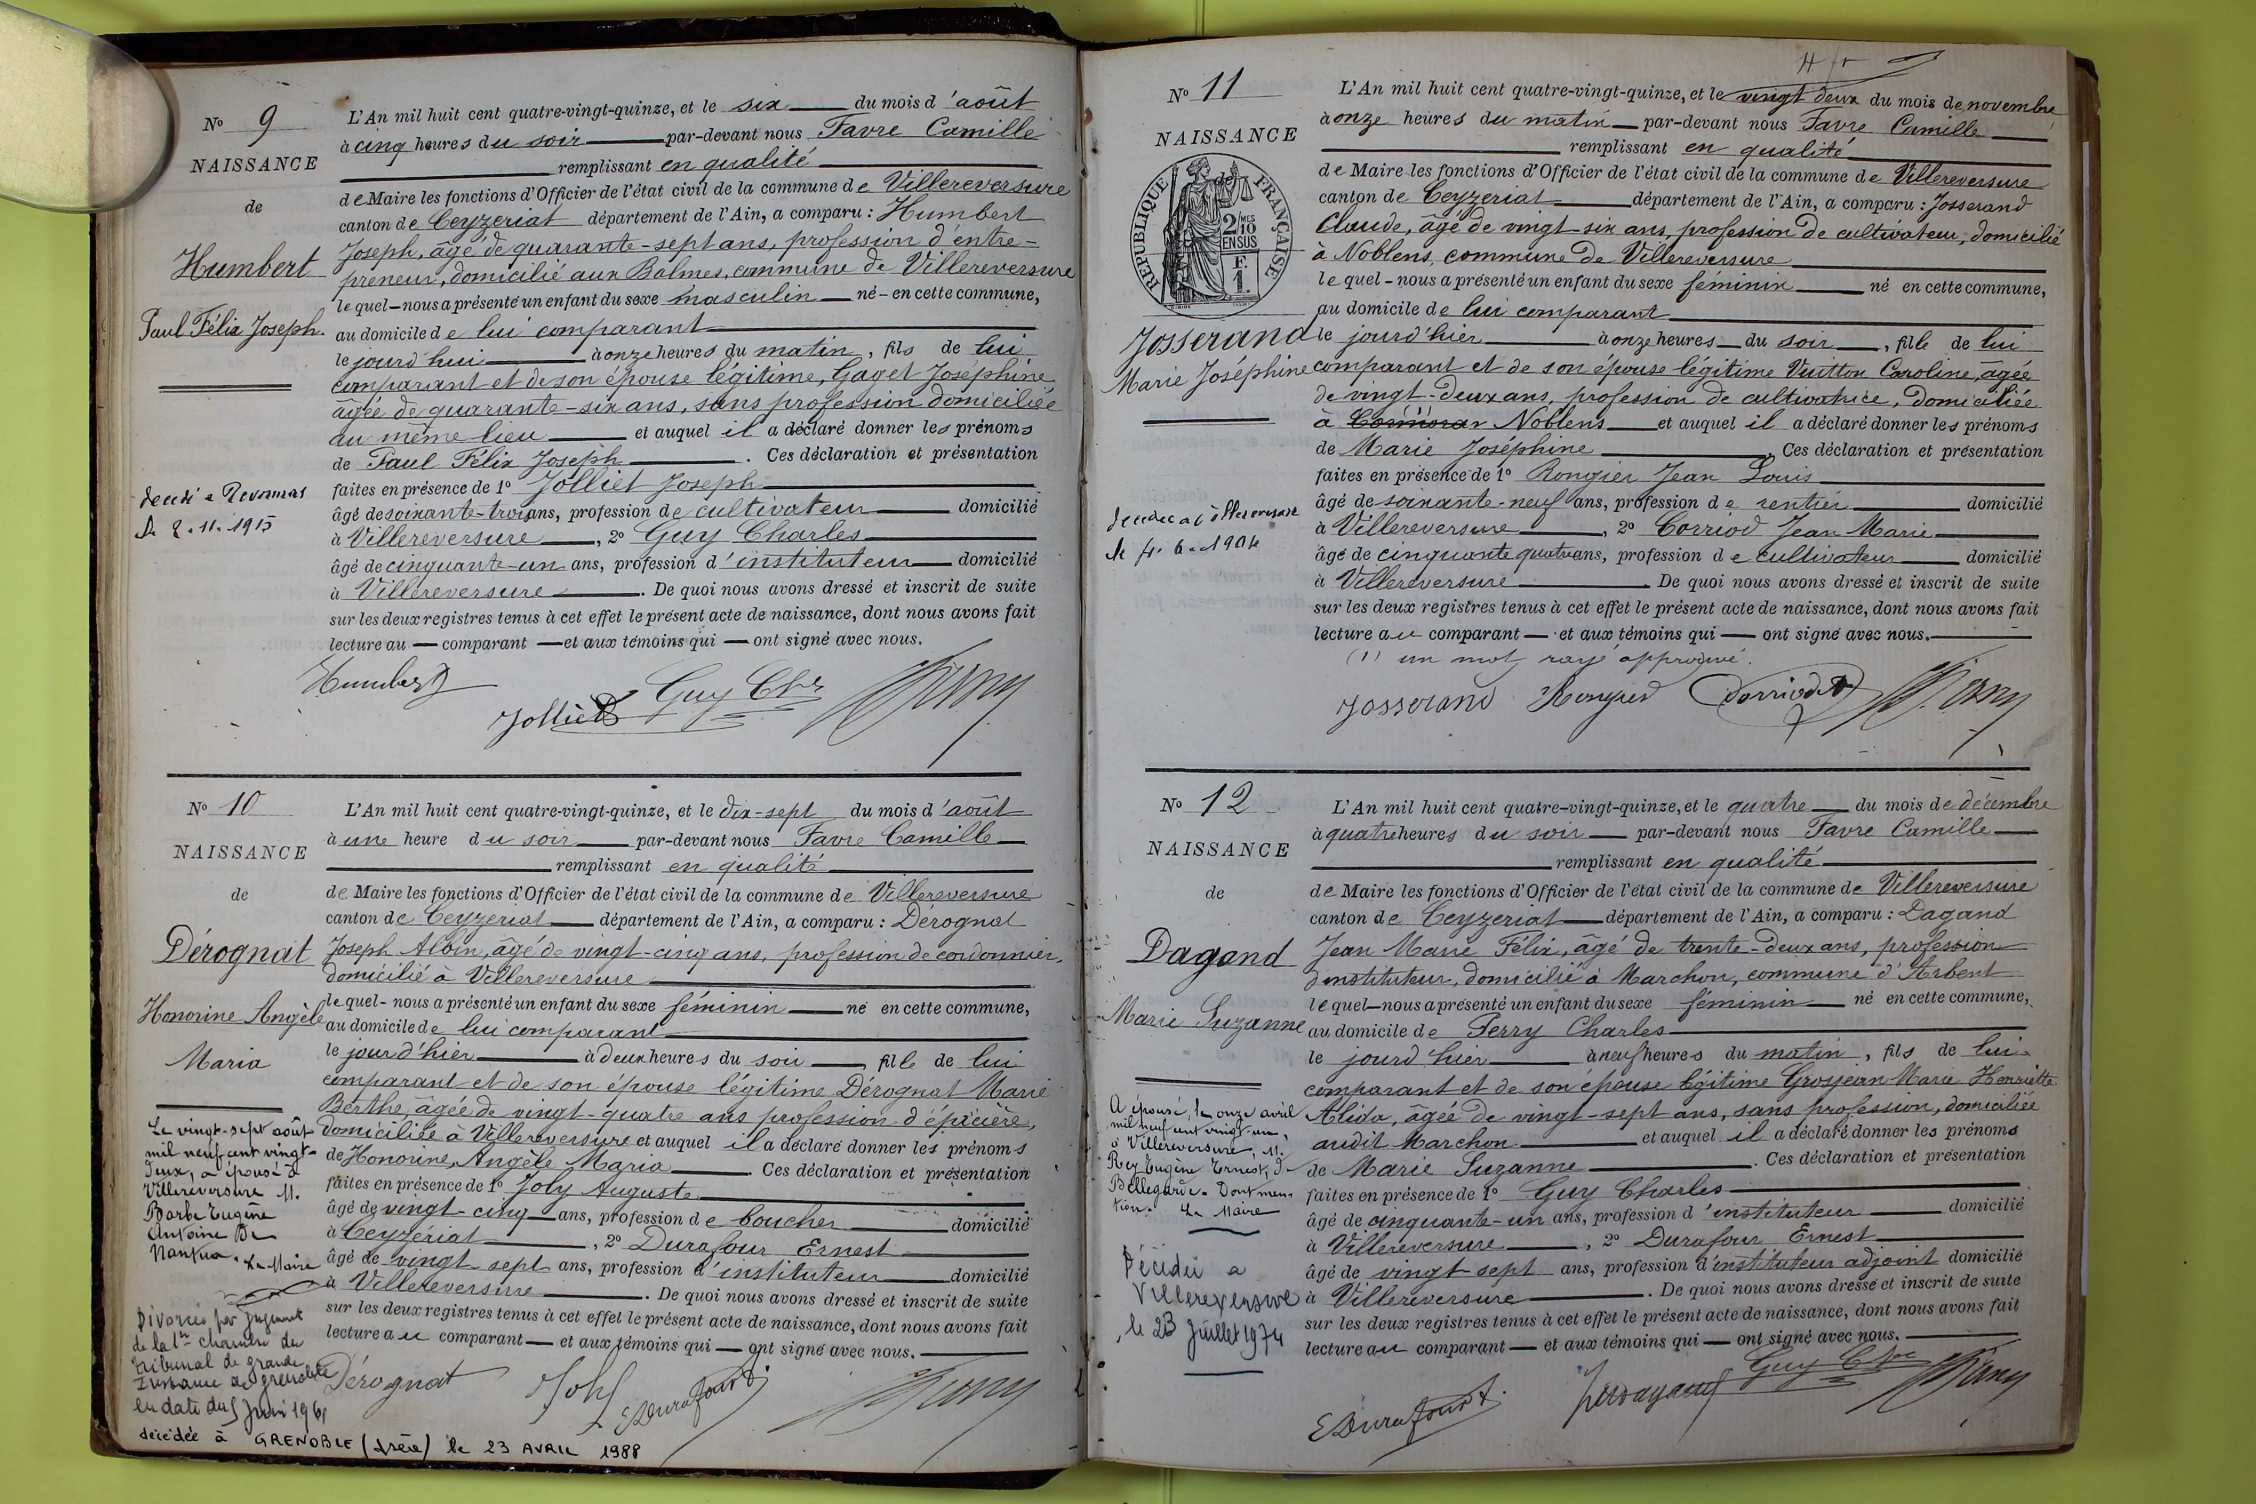 Nº 9
NAISSANCE
de
Humbert
Paul Félix Joseph.
décédé à Revonnas
le 2.11.1915
L'An mil huit cent quatre-vingt-quinze, et le six du mois d'août
à cinq heures du soir par-devant nous Favre Camille
remplissant en qualité
de Maire les fonctions d'Officier de l'état civil de la commune de Villereversure
canton de Ceyzeriat département de l'Ain, a comparu : Humbert
Joseph, âgé de quarante-sept ans, profession d'entre-
preneur, domicilié aux Balmes, commune de Villereversure
lequel nous a présenté un enfant du sexe masculin né en cette commune,
au domicile de lui comparant
le jourd'hui à onze heures du matin, fils de lui
comparant et de son épouse légitime, Gaget Joséphine
âgée de quarante-six ans, sans profession domiciliée
au même lieu et auquel il a déclaré donner les prénoms
de Paul Félix Joseph. Ces déclaration et présentation
faites en présence de 1º Jolliet Joseph
âgé de soixante-trois ans, profession de cultivateur domicilié
à Villereversure, 2º Guy Charles
âgé de cinquante-un ans, profession d'instituteur domicilié
à Villereversure. De quoi nous avons dressé et inscrit de suite
sur les deux registres tenus à cet effet le présent acte de naissance, dont nous avons fait
lecture au comparant et aux témoins qui ont signé avec nous.
Humbert
Jolliet Guy Ches
Nº 10
NAISSANCE
de
Dérognat
Honorine Angèle
Maria
Le vingt-sept août
mil neuf cent vingt-
deux, a épousé à
Villereversure M.
Barbe Eugène
Antoine De
Nantua. Le Maire
Divorcée par jugement
de la 1re chambre du
Tribunal de grande
Instance de Grenoble
en date du 5 Juin 1961
décédée à GRENOBLE (Isère) le 23 AVRIL 1988
L'An mil huit cent quatre-vingt-quinze, et le dix-sept du mois d'août
à une heure du soir par-devant nous Favre Camille
remplissant en qualité
de Maire les fonctions d'Officier de l'état civil de la commune de Villereversure
canton de Ceyzeriat département de l'Ain, a comparu : Dérognat
Joseph Albin, âgé de vingt-cinq ans, profession de cordonnier,
domicilié à Villereversure
lequel nous a présenté un enfant du sexe féminin né en cette commune,
au domicile de lui comparant
le jourd'hier à deux heures du soir, fille de lui
comparant et de son épouse légitime Dérognat Marie
Berthe, âgée de vingt-quatre ans profession d'épicière,
domiciliée à Villereversure et auquel il a déclaré donner les prénoms
de Honorine, Angèle Maria. Ces déclaration et présentation
faites en présence de 1º Joly Auguste
âgé de vingt-cinq ans, profession de boucher domicilié
à Ceyzériat, 2º Durafour Ernest
âgé de vingt sept ans, profession d'instituteur domicilié
à Villereversure. De quoi nous avons dressé et inscrit de suite
sur les deux registres tenus à cet effet le présent acte de naissance, dont nous avons fait
lecture au comparant et aux témoins qui ont signé avec nous.
Dérognat Joly EDurafour
Nº 11
NAISSANCE
de
RÉPUBLIQUE FRANÇAISE
2 MES
10
EN SUS
F.
1.
Josserand
Marie Joséphine
décédée à Villereversure
le 4.6.1904
L'An mil huit cent quatre-vingt-quinze, et le vingt deux du mois de novembre
à onze heures du matin par-devant nous Favre Camille
remplissant en qualité
de Maire les fonctions d'Officier de l'état civil de la commune de Villereversure
canton de Ceyzeriat département de l'Ain, a comparu : Josserand
Claude, âgé de vingt-six ans, profession de cultivateur, domicilié
à Noblens, commune de Villereversure
lequel nous a présenté un enfant du sexe féminin né en cette commune,
au domicile de lui comparant
le jourd'hier à onze heures du soir, fille de lui
comparant et de son épouse légitime Vuitton Caroline, âgée
de vingt-deux ans, profession de cultivatrice, domiciliée
à Noblens et auquel il a déclaré donner les prénoms
de Marie Joséphine Ces déclaration et présentation
faites en présence de 1º Rongier Jean Louis
âgé de soixante-neuf ans, profession de rentier domicilié
à Villereversure, 2º Corriod Jean Marie
âgé de cinquante quatre ans, profession de cultivateur domicilié
à Villereversure. De quoi nous avons dressé et inscrit de suite
sur les deux registres tenus à cet effet le présent acte de naissance, dont nous avons fait
lecture au comparant et aux témoins qui ont signé avec nous.
(1) un mot rayé approuvé.
Josserand Rongier Corriod
Nº 12
NAISSANCE
de
Dagand
Marie Suzanne
A épousé, le onze avril
mil neuf cent vingt-un,
à Villereversure, M.
Rey Eugène Ernest, de
Bellegarde. Dont men-
tion. Le Maire
Décédée à
Villereversure
, le 23 Juillet 1974
L'An mil huit cent quatre-vingt-quinze, et le quatre du mois de décembre
à quatre heures du soir par-devant nous Favre Camille
remplissant en qualité
de Maire les fonctions d'Officier de l'état civil de la commune de Villereversure
canton de Ceyzeriat département de l'Ain, a comparu : Dagand
Jean Marie Félix, âgé de trente-deux ans, profession
d'instituteur, domicilié à Marchon, commune d'Arbent
lequel nous a présenté un enfant du sexe féminin né en cette commune,
au domicile de Ferry Charles
le jourd'hier à neuf heures du matin, fils de lui
comparant et de son épouse légitime Grosjean Marie Henriette
Alida, âgée de vingt-sept ans, sans profession, domiciliée
audit Marchon et auquel il a déclaré donner les prénoms
de Marie Suzanne. Ces déclaration et présentation
faites en présence de 1º Guy Charles
âgé de cinquante-un ans, profession d'instituteur domicilié
à Villereversure, 2º Durafour Ernest
âgé de vingt-sept ans, profession d'instituteur adjoint domicilié
à Villereversure. De quoi nous avons dressé et inscrit de suite
sur les deux registres tenus à cet effet le présent acte de naissance, dont nous avons fait
lecture au comparant et aux témoins qui ont signé avec nous.
EDurafour Guy Ches